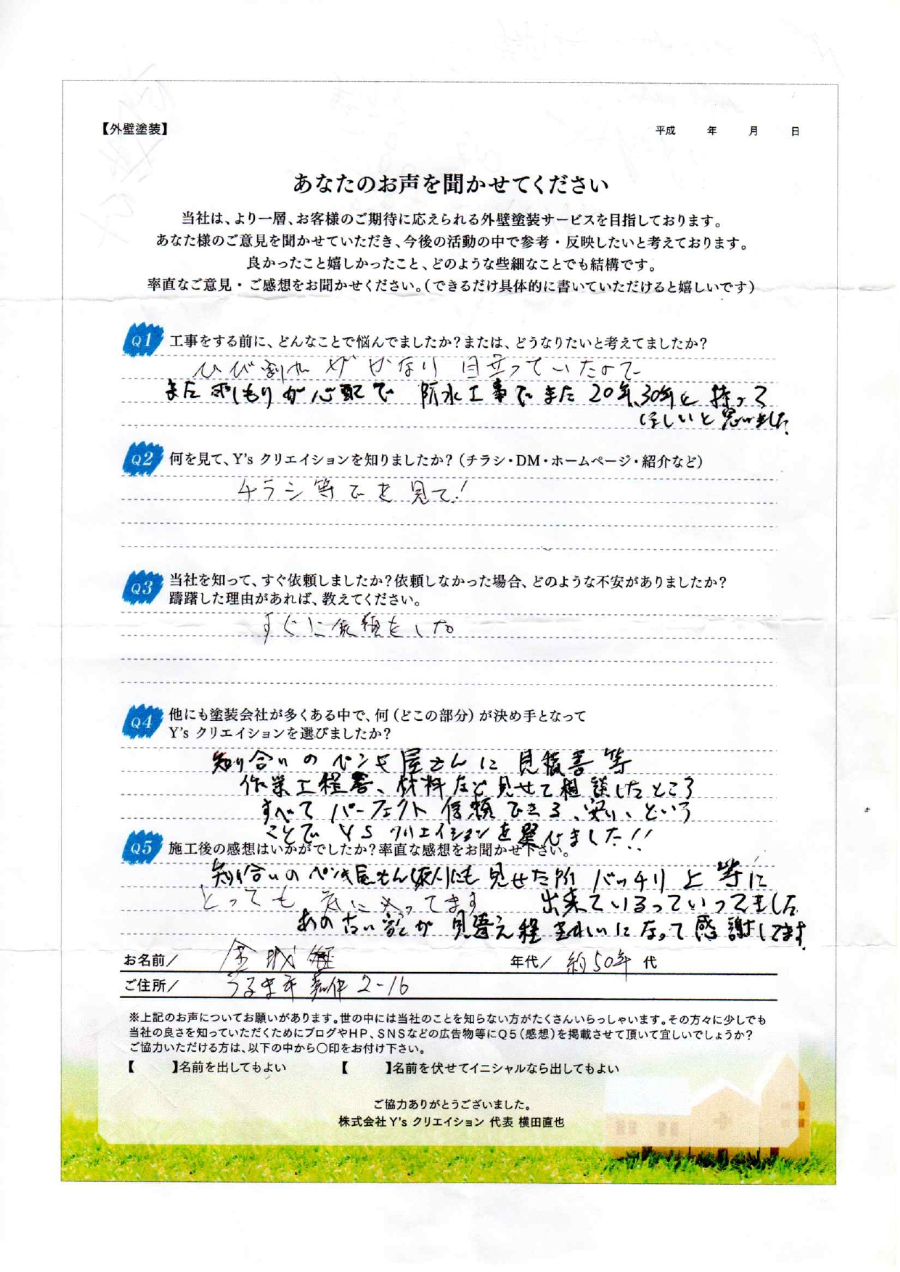 【外壁塗装】
平成　年　月　日
あなたのお声を聞かせてください
当社は、より一層、お客様のご期待に応えられる外壁塗装サービスを目指しております。
あなた様のご意見を聞かせていただき、今後の活動の中で参考・反映したいと考えております。
良かったこと嬉しかったこと、どのような些細なことでも結構です。
率直なご意見・ご感想をお聞かせください。（できるだけ具体的に書いていただけると嬉しいです）
Q1 工事をする前に、どんなことで悩んでましたか？または、どうなりたいと考えてましたか？
ひび割れがかなり目立っていたので
また雨もりが心配で 防水工事でまた20年、30年と持って
ほしいと思いました
Q2 何を見て、Y's クリエイションを知りましたか？（チラシ・DM・ホームページ・紹介など）
チラシ等でを見て！
Q3 当社を知って、すぐ依頼しましたか？依頼しなかった場合、どのような不安がありましたか？
躊躇した理由があれば、教えてください。
すぐに依頼をした。
Q4 他にも塗装会社が多くある中で、何（どこの部分）が決め手となって
Y's クリエイションを選びましたか？
知り合いのペンキ屋さんに 見積書等
作業工程書、材料など見せて相談したところ
すべて パーフェクト 信頼できる、安い、という
ことで YS クリエイションを選びました!!
Q5 施工後の感想はいかがでしたか？率直な感想をお聞かせ下さい。
知り合いのペンキ屋さん(友人)にも 見せた所 バッチリ 上等に
とっても 気に入ってます 出来ているっていってました
あの古い家が 見違え程 きれいになって感謝してます
お名前/ 金城
年代/ 約50年 代
ご住所/ うるま市 2-16
※上記のお声についてお願いがあります。世の中には当社のことを知らない方がたくさんいらっしゃいます。その方々に少しでも
当社の良さを知っていただくためにブログやHP、SNSなどの広告物等にQ5（感想）を掲載させて頂いて宜しいでしょうか？
ご協力いただける方は、以下の中から〇印をお付け下さい。
【　】名前を出してもよい　【　】名前を伏せてイニシャルなら出してもよい
ご協力ありがとうございました。
株式会社 Y's クリエイション 代表 横田直也